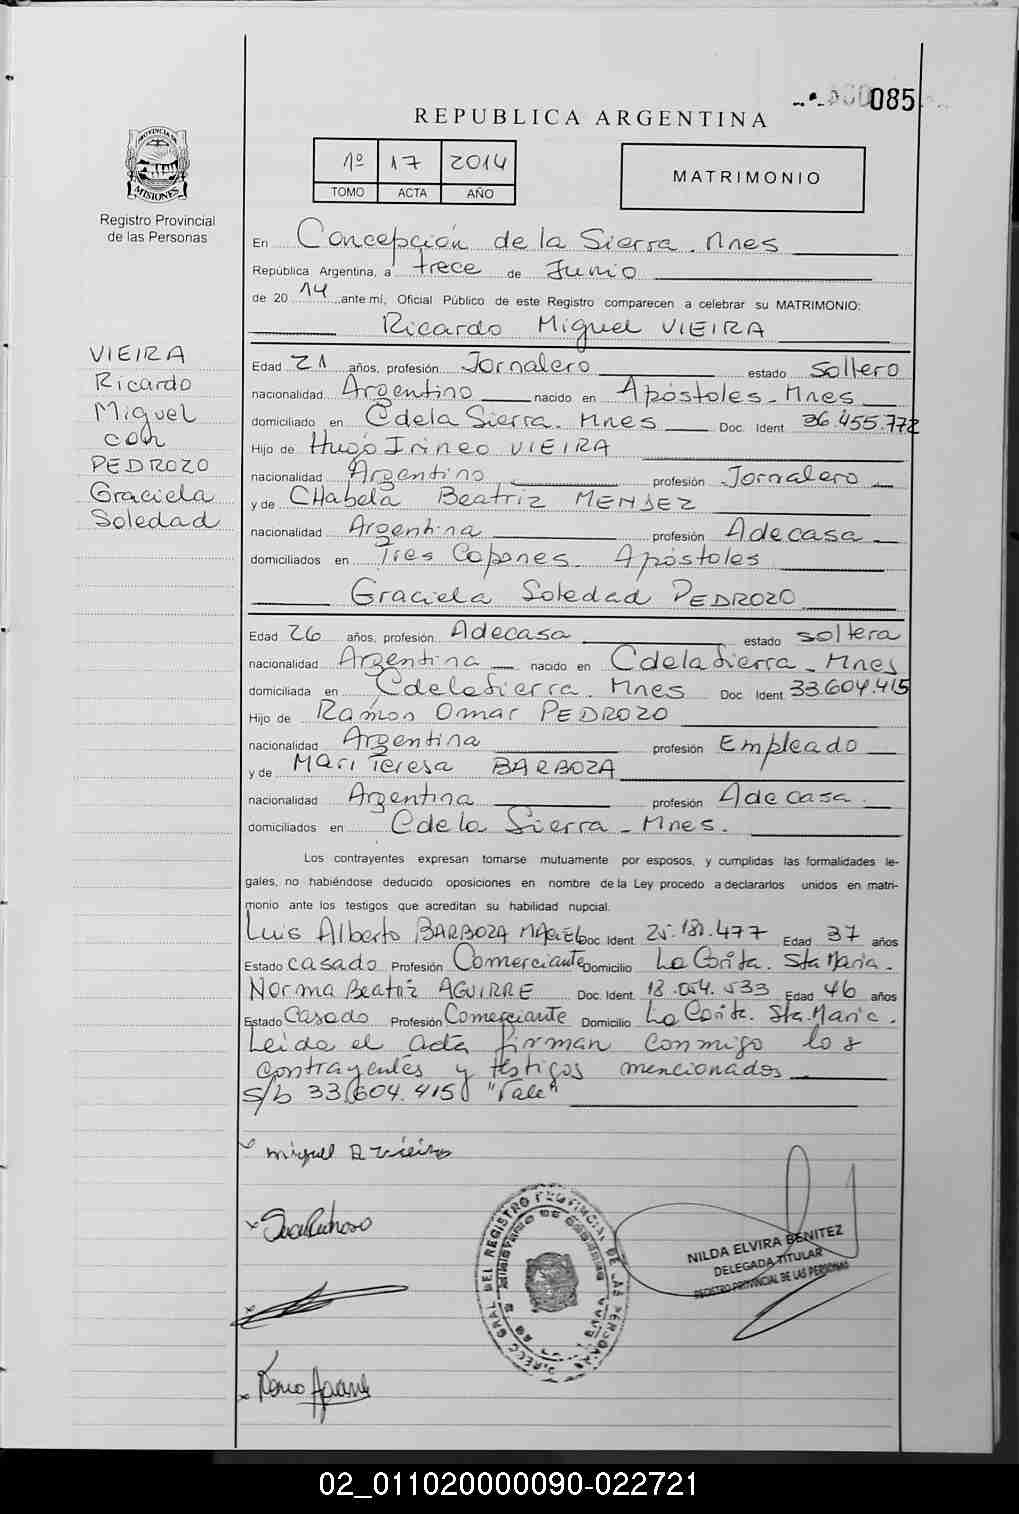 085
REPUBLICA ARGENTINA
1º 17 2014
TOMO ACTA AÑO
MATRIMONIO
PROVINCIA DE
MISIONES
Registro Provincial
de las Personas
En Concepción de la Sierra. Mnes
República Argentina, a trece de Junio
de 20 14 ante mí, Oficial Público de este Registro comparecen a celebrar su MATRIMONIO:
Ricardo Miguel VIEIRA
VIEIRA
Ricardo
Miguel
con
PEDROZO
Graciela
Soledad
Edad 21 años, profesión Jornalero estado soltero
nacionalidad Argentino nacido en Apóstoles - Mnes
domiciliado en C de la Sierra. Mnes Doc. Ident 36.455.772
Hijo de Hugo Irineo VIEIRA
nacionalidad Argentino profesión Jornalero
y de CHabela Beatriz MENDEZ
nacionalidad Argentina profesión Adecasa
domiciliados en Tres Capones - Apóstoles
Graciela Soledad PEDROZO
Edad 26 años, profesión Adecasa estado soltera
nacionalidad Argentina nacido en C de la Sierra - Mnes
domiciliada en C de la Sierra. Mnes Doc Ident 33.604.415
Hijo de Ramon Omar PEDROZO
nacionalidad Argentina profesión Empleado
y de Mari Teresa BARBOZA
nacionalidad Argentina profesión Ade casa.
domiciliados en C de la Sierra - Mnes.
Los contrayentes expresan tomarse mutuamente por esposos, y cumplidas las formalidades le-
gales, no habiéndose deducido oposiciones en nombre de la Ley procedo a declararlos unidos en matri-
monio ante los testigos que acreditan su habilidad nupcial.
Luis Alberto BARBOZA MACIEL Doc Ident 25.181.477 Edad 37 años
Estado casado Profesión Comerciante Domicilio La Corita. Sta Maria.
Norma Beatriz AGUIRRE Doc. Ident. 18.054.533 Edad 46 años
Estado Casado Profesión Comerciante Domicilio La Corita. Sta. Maria.
Leida el acta firman conmigo los
contrayentes y testigos mencionados
S/b 33.604.415 "Vale"
miguel R vieira
DIRECC GRAL DEL REGISTRO PROVINCIAL DE LAS PERSONAS
MINISTERIO DE GOBIERNO
NILDA ELVIRA BENITEZ
DELEGADA TITULAR
REGISTRO PROVINCIAL DE LAS PERSONAS
02_011020000090-022721